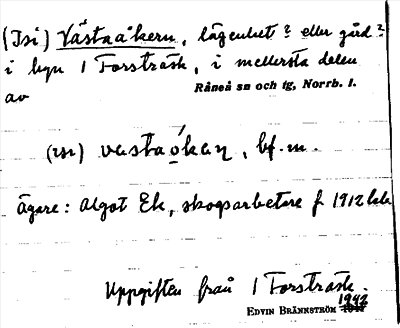 (Isi) Västaåkern, lägenhet? eller gård?
i byn 1 Forsträsk, i mellersta delen
av
Råneå sn och tg, Norrb. l.
(isi) vastaọkaɳ, bf. m.
Ägare: Algot Ek, skogsarbetare f 1912
Uppgiften från 1 Forsträsk.
EDVIN BRÄNNSTRÖM 1942